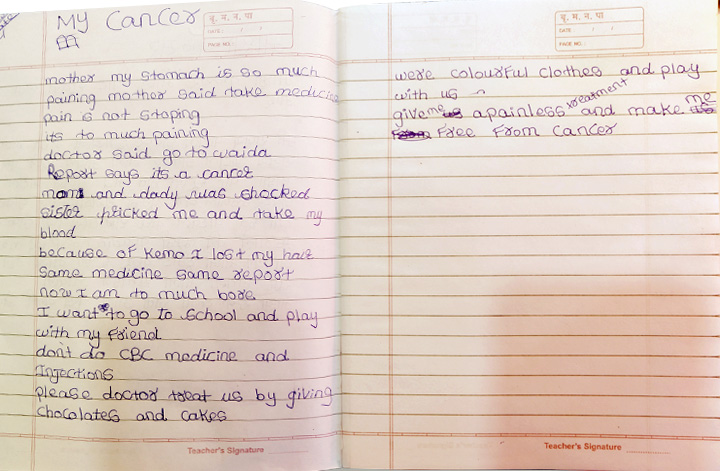 My Cancer
बृ. म. न. पा.
DATE:
PAGE NO.:
mother my stomach is so much
paining mother said take medicine
pain is not stoping
its to much paining
doctor said go to waida
Report says its a cancer
mom and dady was shocked
sister pricked me and take my
blood
because of kemo I lost my hair
same medicine same report
now I am to much bore
I want to go to school and play
with my friend
don't do CBC medicine and
Injections
please doctor treat us by giving
chocolates and cakes
Teacher's Signature
बृ. म. न. पा.
DATE:
PAGE NO.:
were colourful clothes and play
with us
give me a painless treatment and make me
Free From cancer
Teacher's Signature